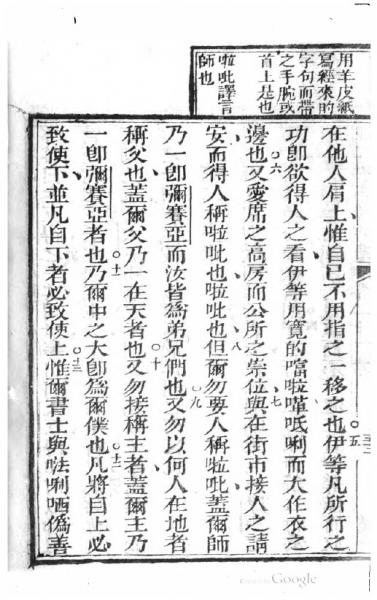 用羊皮紙
寫經來的
字句而帶
之手腕或
首上是也
啦吡譯言
師也
在他人肩上惟自己不用指之一移之也○五伊等凡所行之
功卽欲得人之看伊等用寬的啦呧唎而大作衣之
邊也○六又愛席之高房而公所之崇位○七與在街市接人之請
安而得人稱啦吡也啦吡也○八但爾勿要人稱啦吡蓋爾師
乃一卽彌賽亞而汝皆爲弟兄們也○九又勿以何人在地者
稱父也蓋爾父乃一在天者也○十又勿接稱主者蓋爾主乃
一卽彌賽亞者也○十一乃爾中之大卽爲爾僕也○十二凡將自上必
致使下並凡自下者必致使上○十三惟爾書士與唎哂僞善
Google